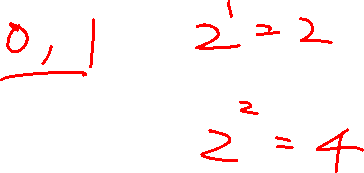 0, 1 2¹ = 2
2² = 4